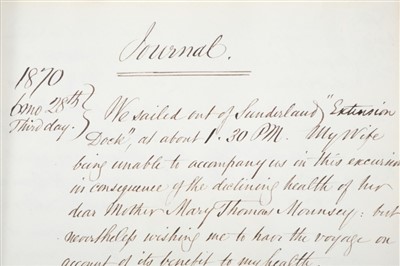 Journal.
1870
6mo 28th
Third day.
We sailed out of Sunderland "Extension
Dock", at about 1.30 PM. My Wife
being unable to accompany us in this excursion
in consequence of the declining health of her
dear Mother Mary Thomas Mounsey: but
nevertheless wishing me to have the voyage on
account of its benefit to my health.